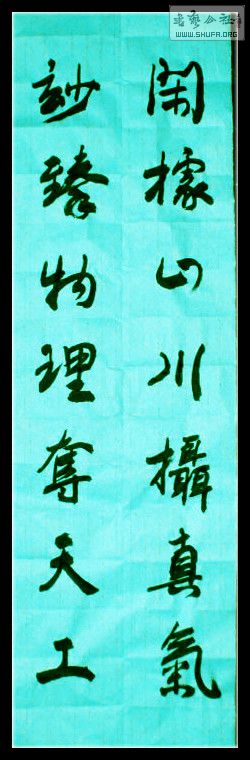 書藝公社
WWW.SHUFA.ORG
閑據山川攝真氣
玅臻物理奪天工